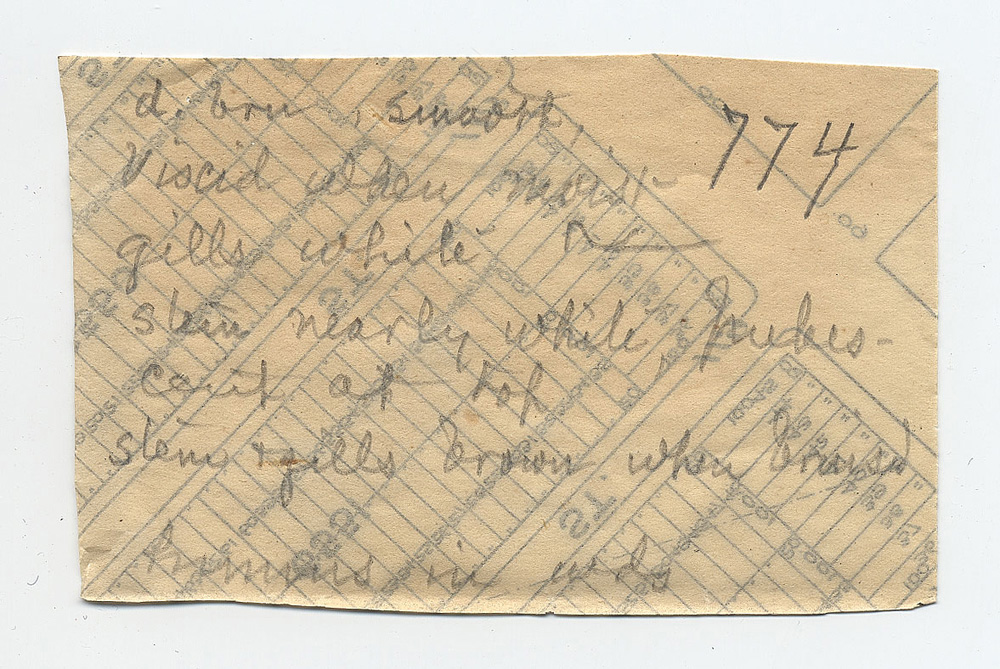 d. brn, smooth, 774
Viscid when moist
gills white
stem nearly white, pubes-
cent at top
stem + gills brown when bruised
humus in wds